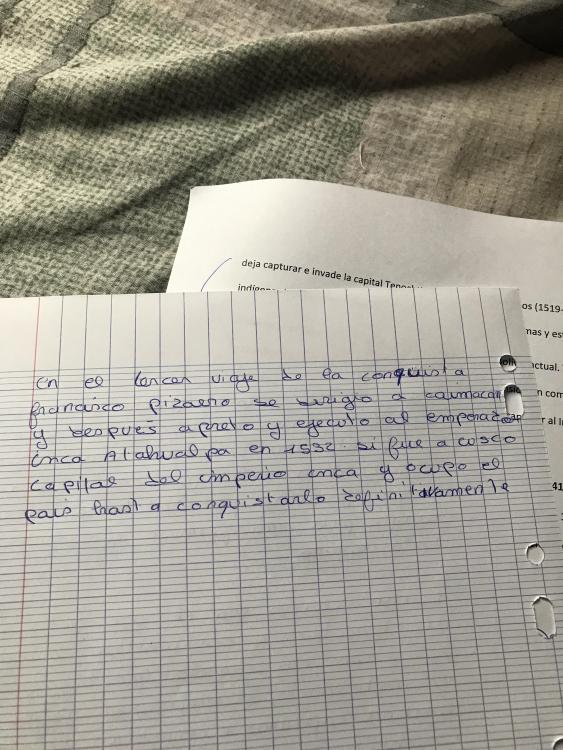 deja capturar e invade la capital
os (1519-
mas y es
nctual.
n com
r al I
41
En el tercer viaje de la conquista
francisco pizarro se dirigio a caumacan
y despues apreto y ejecuto al emperador
inca Atahualpa en 1532. si fue a cusco
capital del imperio inca y ocupo el
pais hasta conquistarlo definitavamente